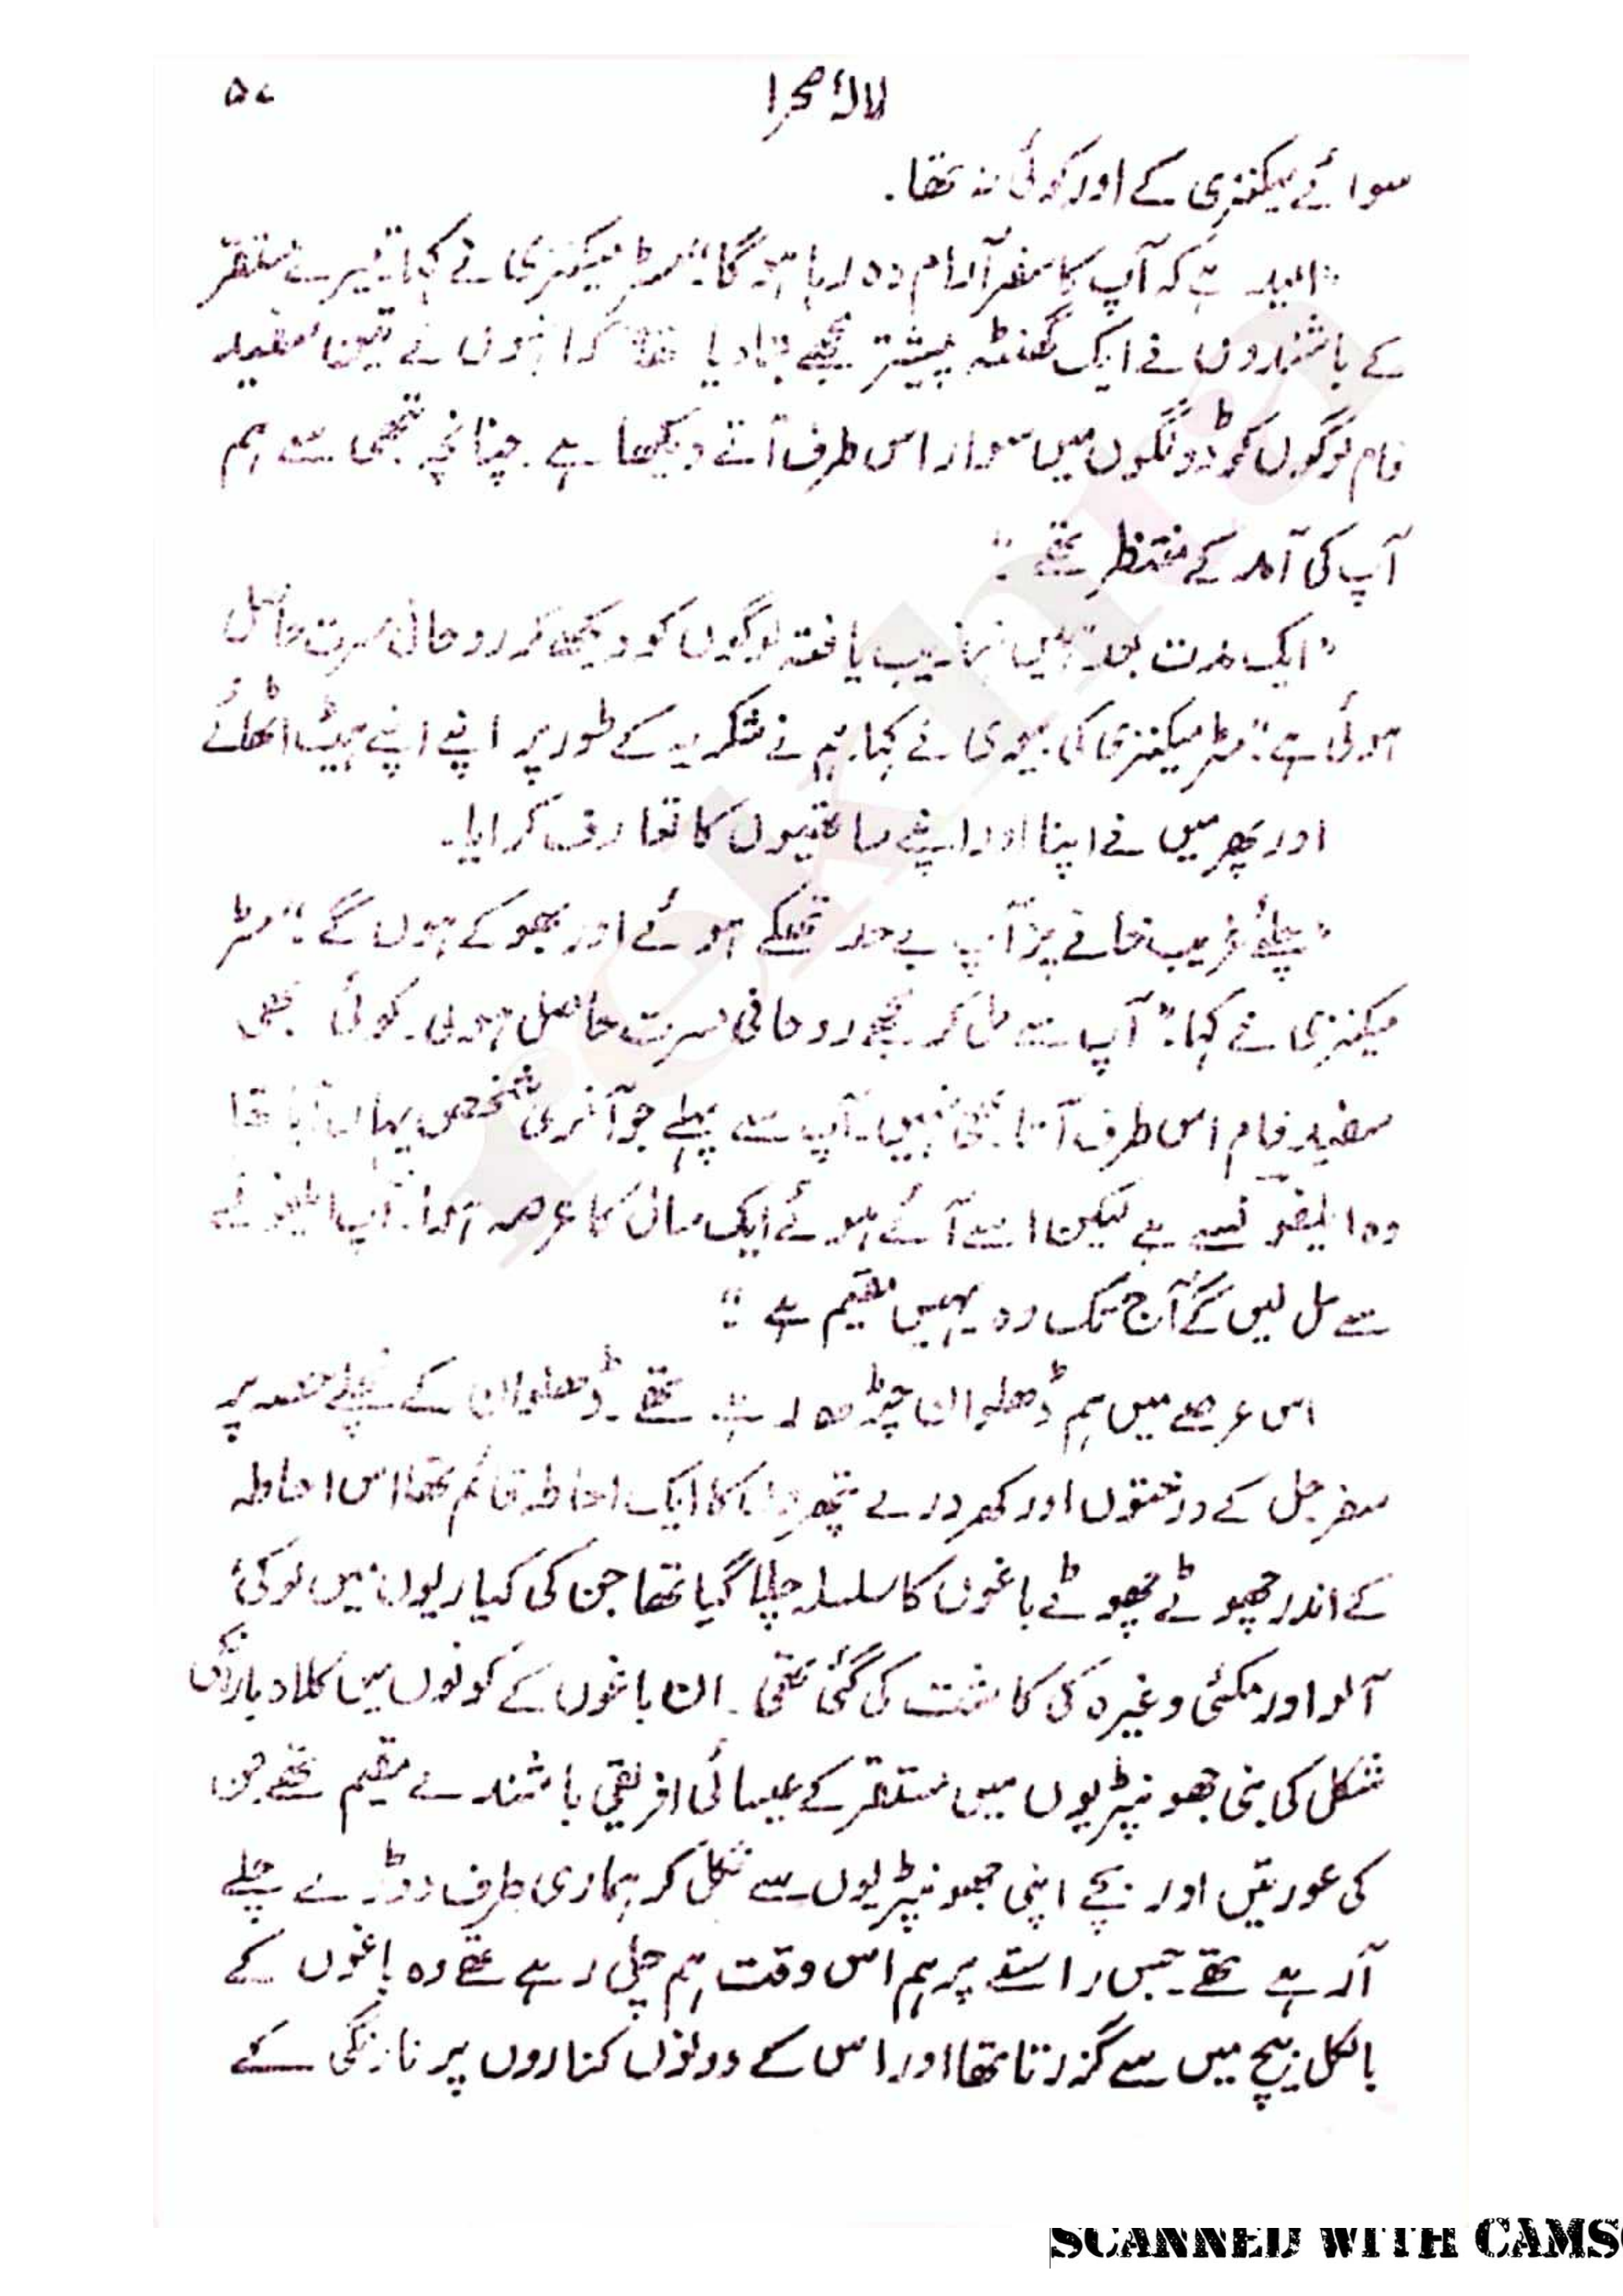 لالۂ صحرا ۵۷
سوائے میکنزی کے اور کوئی نہ تھا۔
"امید ہے کہ آپ کا سفر آرام دہ رہا ہو گا"۔ مسٹر میکنزی نے کہا "میرے مستقر
کے باشندوں نے ایک گھنٹہ پیشتر مجھے بتا دیا تھا کہ انہوں نے تین سفید
فام لوگوں کو ڈونگوں میں سوار اس طرف آتے دیکھا ہے۔ چنانچہ تبھی سے ہم
آپ کی آمد کے منتظر تھے"۔
"ایک مدت بعد ہمیں تہذیب یافتہ لوگوں کو دیکھ کر روحانی مسرت حاصل
ہوئی ہے"۔ مسٹر میکنزی کی بیوی نے کہا۔ ہم نے شکریہ کے طور پر اپنے اپنے ہیٹ اٹھائے
اور پھر میں نے اپنا اور اپنے ساتھیوں کا تعارف کرایا۔
"چلئے غریب خانے پر آپ بے حد تھکے ہوئے اور بھوکے ہوں گے"۔ مسٹر
میکنزی نے کہا۔ "آپ سے مل کر مجھے روحانی مسرت حاصل ہوئی۔ کوئی بھی
سفید فام اس طرف آتا ہی نہیں۔ آپ سے پہلے جو آخری شخص یہاں آیا تھا
وہ ایلفونسے ہے لیکن اسے آئے ہوئے ایک سال کا عرصہ ہوا۔ آپ ایلفونسے
سے مل لیں گے آج تک وہ یہیں مقیم ہے"۔
اس عرصے میں ہم ڈھلوان چڑھ رہے تھے۔ ڈھلوان کے نچلے حصہ پر
سفرجل کے درختوں اور کھردرے پتھروں کا ایک احاطہ قائم تھا اس احاطہ
کے اندر چھوٹے چھوٹے باغوں کا سلسلہ چلا گیا تھا جن کی کیاریوں میں لوکی
آلو اور مکئی وغیرہ کی کاشت کی گئی تھی۔ ان باغوں کے کونوں میں کلاہ باراں کی
شکل کی بنی جھونپڑیوں میں مستقر کے عیسائی افریقی باشندے مقیم تھے جن
کی عورتیں اور بچے اپنی جھونپڑیوں سے نکل کر ہماری طرف دوڑے چلے
آرہے تھے۔ جس راستے پر ہم اس وقت ہم چل رہے تھے وہ باغوں کے
بالکل بیچ میں سے گزرتا تھا اور اس کے دونوں کناروں پر نارنگی کے
rekhta
SCANNED WITH CAMS